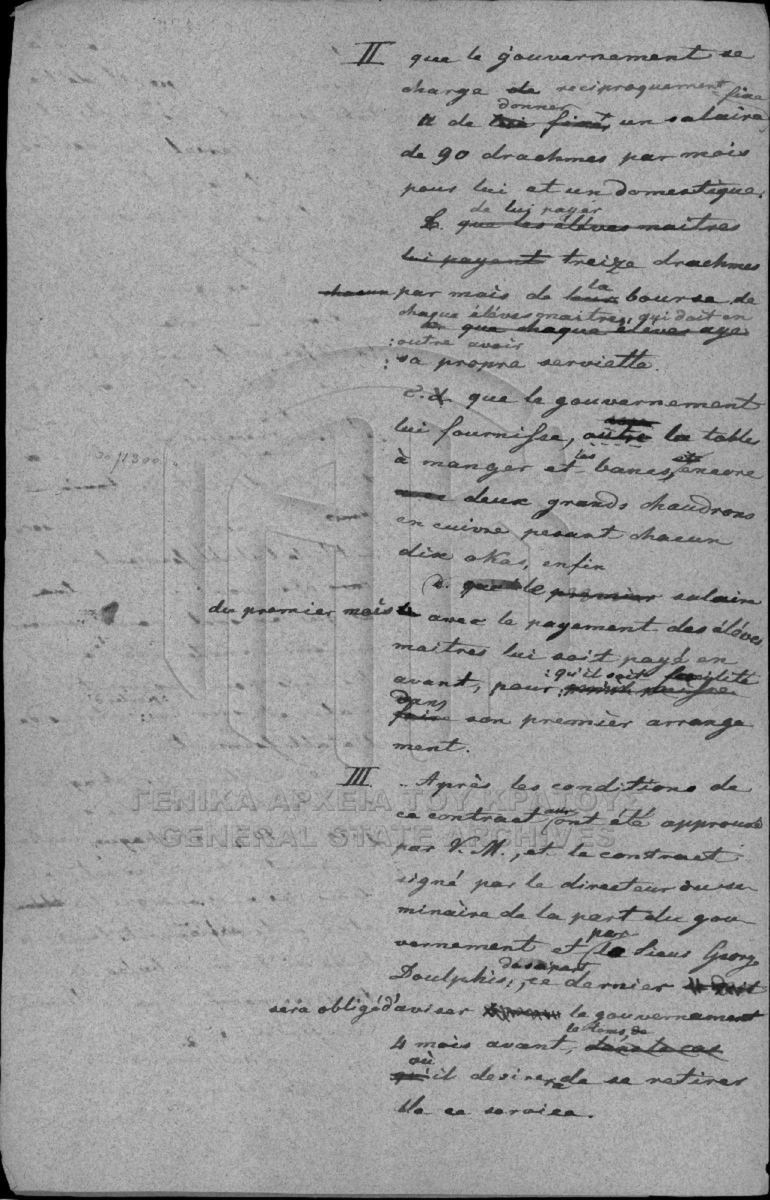 II que le gouvernement se
charge de reciproquement fixe
donner
a de lui fixer un salaire
de 90 drachmes par mois
pour lui et un domestique.
de lui payer
b. que les élèves maitres
lui payent treize drachmes
la
chacun par mois de leur bourse de
chaque élèves maitres, qui doit en
en que chaque élèves aye
outre avoir
sa propre serviette.
c. que le gouvernement
lui fournisse, outre la table
les
à manger et bancs, encore
deux grands chaudrons
en cuivre pesant chacun
dix okas, enfin
d. que le premier salaire
du premier mois avec le payement des élèves
maitres lui soit payé en
qu'il soit facilité
avant, pour
dans
faire son premier arrange
ment.
III. Après les conditions de
ce contract ont été approuvé
par V. M., et le contract
signé par le directeur du se
minaire de la part du gou
par
vernement et le Sieur George
de sa part
Doulphis, ce dernier
sera obligé d'aviser le gouvernement
le tems de
4 mois avant, dans le cas
où
qu'il desirera de se retirer
de ce service.
ΓΕΝΙΚΑ ΑΡΧΕΙΑ ΤΟΥ ΚΡΑΤΟΥΣ
GENERAL STATE ARCHIVES